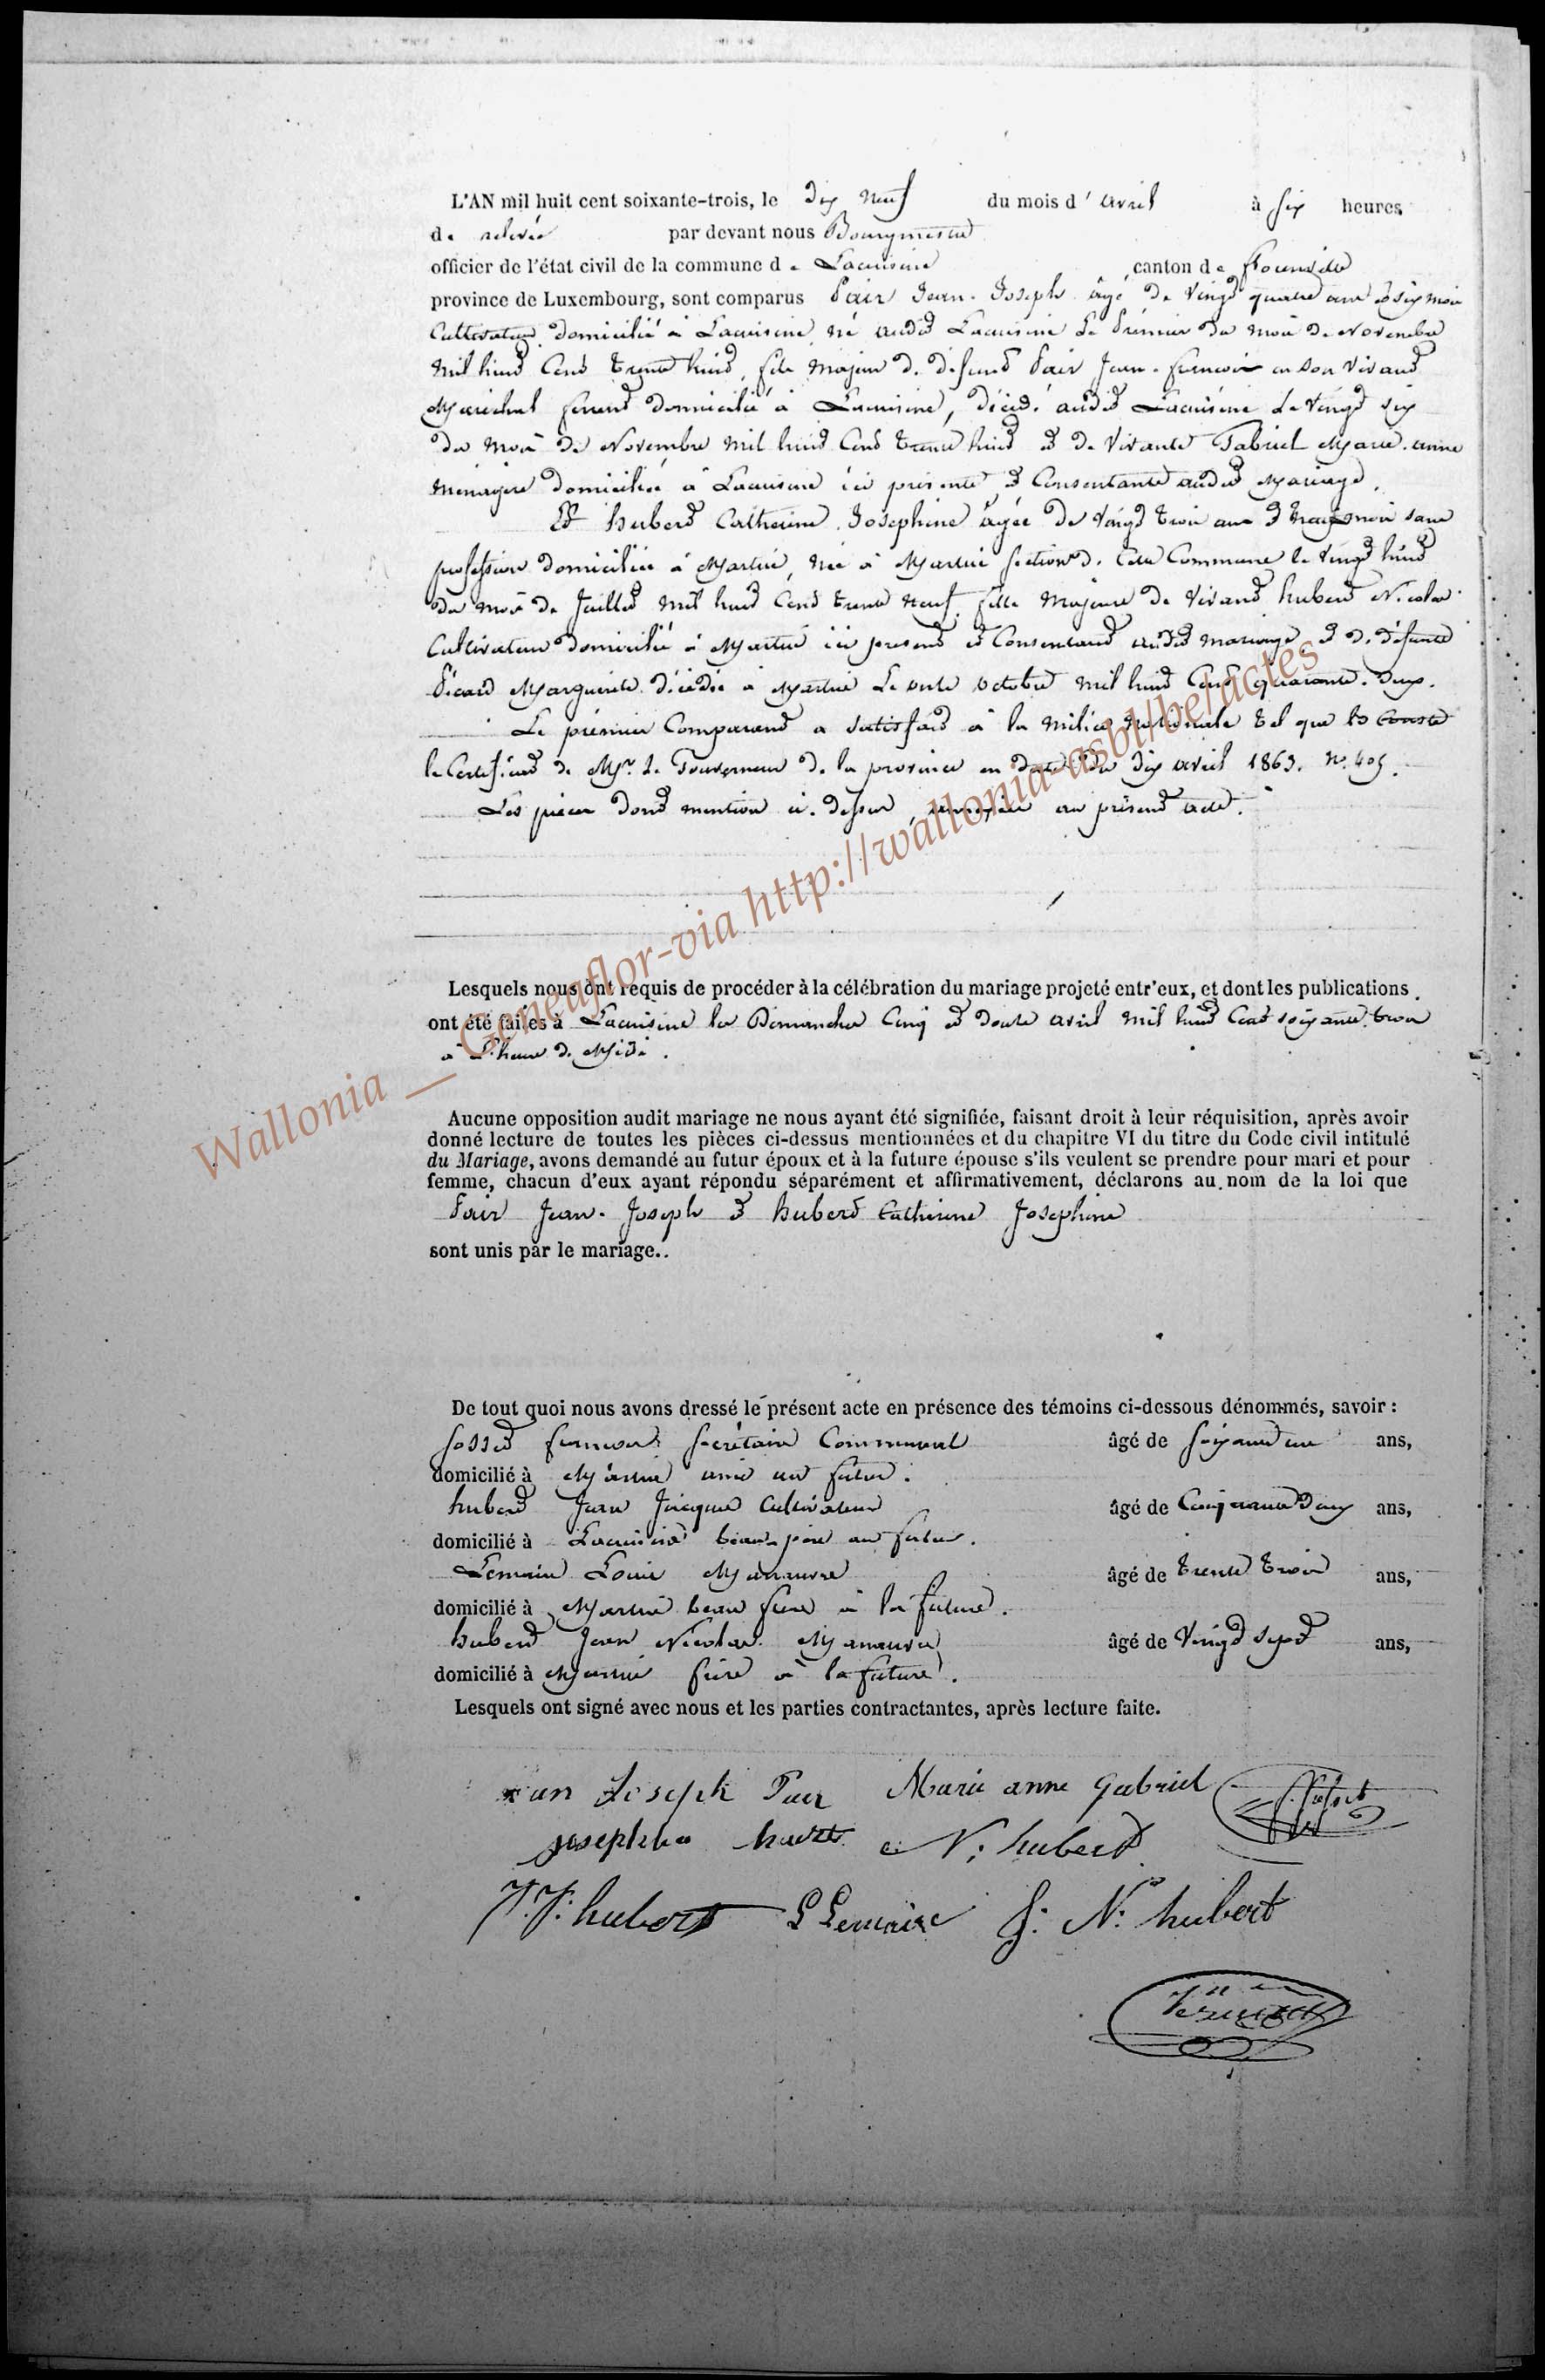 L'AN mil huit cent soixante-trois, le dix neuf du mois d' avril à six heures
de relevée par devant nous Bourgmestre
officier de l'état civil de la commune de Lacuisine canton de Florenville
province de Luxembourg, sont comparus Pair Jean-Joseph âgé de vingt quatre ans et six mois
Cultivateur domicilié à Lacuisine, né audit Lacuisine le premier du mois de Novembre
mil huit Cent trente huit, fils majeur de defunt Pair Jean-francois en son vivant
Maréchal ferrant domicilié à Lacuisine, décédé audit Lacuisine le vingt six
du mois de Novembre mil huit Cent trente huit et de vivante Gabriel Marie-anne
ménagère domiciliée à Lacuisine ici présente et Consentante audit Mariage.
Et hubert Catherine Josephine âgée de vingt trois ans et mois sans
profession domiciliée à Martué, née à Martué section de Cette Commune le vingt huit
du mois de Juillet mil huit Cent trente neuf fille Majeure de vivant hubert Nicolas
Cultivateur domicilié à Martué ici present et Consentant audit mariage et de défunte
Picard Marguerite décédée à Martué le onze octobre mil huit Cent quarante-deux.
Le prémier Comparant a satisfait à la milice nationale tel que le Conste
le Certificat de Mr. le Gouverneur de la province en date du dix avril 1863. No. 405.
Les pièces dont mention ci-dessus annexées au présent acte.
Lesquels nous ont requis de procéder à la célébration du mariage projeté entr'eux, et dont les publications
ont été faites à Lacuisine les Dimanches Cinq et douze avril mil huit Cent soixante trois
à L'heure de Midi.
Aucune opposition audit mariage ne nous ayant été signifiée, faisant droit à leur réquisition, après avoir
donné lecture de toutes les pièces ci-dessus mentionnées et du chapitre VI du titre du Code civil intitulé
du Mariage, avons demandé au futur époux et à la future épouse s'ils veulent se prendre pour mari et pour
femme, chacun d'eux ayant répondu séparément et affirmativement, déclarons au nom de la loi que
Pair Jean-Joseph et hubert Catherine Josephine
sont unis par le mariage..
De tout quoi nous avons dressé le présent acte en présence des témoins ci-dessous dénommés, savoir :
francois secrétaire Communal âgé de soixante ans,
domicilié à Martué ami au futur.
hubert Jean Jacques Cultivateur âgé de Cinquante deux ans,
domicilié à Lacuisine beau-père au futur.
Lemaire Louis Manœuvre âgé de trente trois ans,
domicilié à Martué beau frère à la future.
hubert Jean Nicolas Manœuvre âgé de vingt sept ans,
domicilié à Martué frère à la future.
Lesquels ont signé avec nous et les parties contractantes, après lecture faite.
Jean Joseph Pair Marie anne Gabriel
Josephine hubert N: hubert
J.J: hubert L Lemaire J: N: hubert
Wallonia __ Geneaflor-via http://wallonia-asbl/be/actes